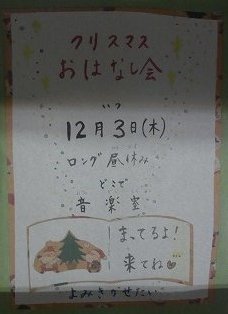 クリスマス
おはなし会
いつ
12月3日(木)
ロング昼休み
どこで
音楽室
まってるよ!
来てね
よみきかせたい